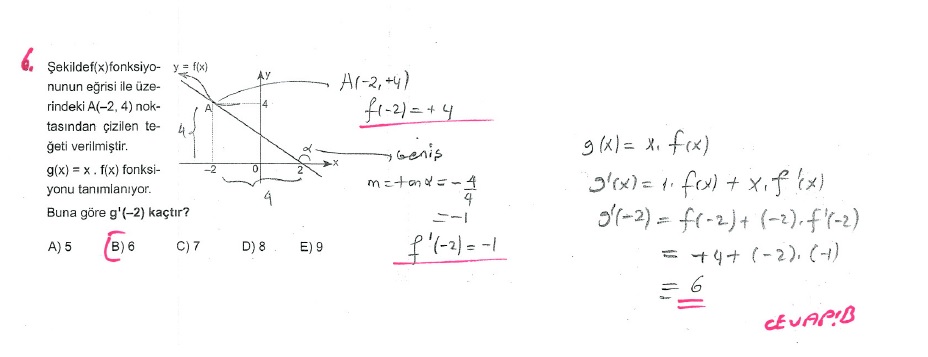 6.
Şekildef(x)fonksiyo-
nunun eğrisi ile üze-
rindeki A(–2, 4) nok-
tasından çizilen te-
ğeti verilmiştir.
g(x) = x . f(x) fonksi-
yonu tanımlanıyor.
Buna göre g'(–2) kaçtır?
A) 5 B) 6 C) 7 D) 8 E) 9
y = f(x)
y
A
4
4
–2 0 2 x
α
4
A(-2,+4)
f(-2) = +4
Geniş
m = tan α = - 4/4
= -1
f'(-2) = -1
g(x) = x. f(x)
g'(x) = 1. f(x) + x. f'(x)
g'(-2) = f(-2) + (-2). f'(-2)
= +4 + (-2). (-1)
= 6
CEVAP:B